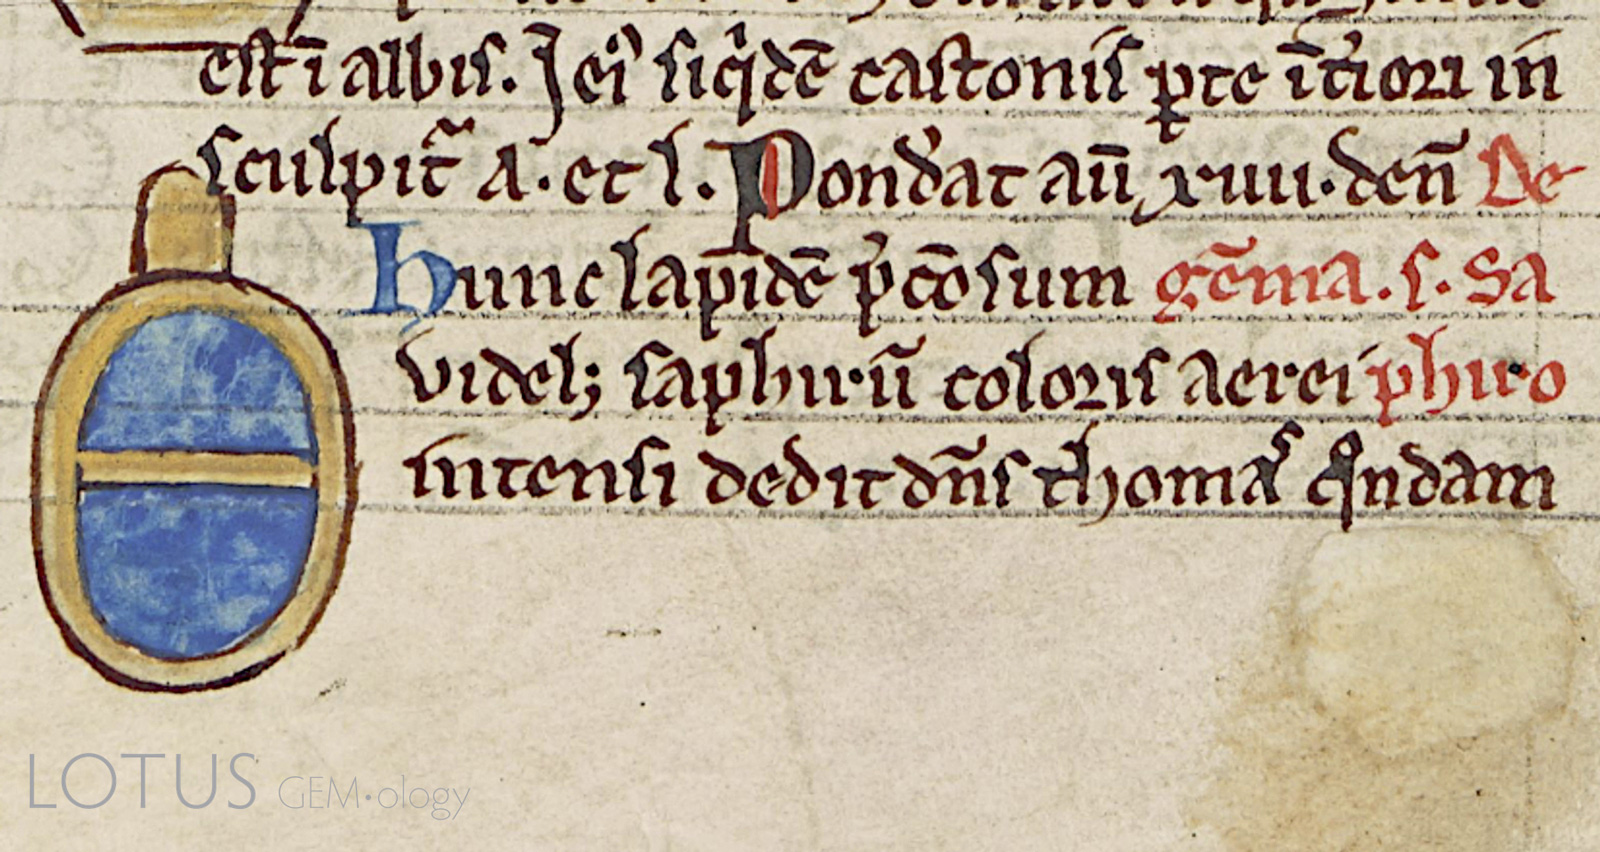 est ī albis. In ei᷒ siq̇dē castonis ꝑte īt̉iori in
sculpit̃ A. et l. Pond̉at aū xviii. deñ De
hunc lapidē p̉cōsum gēma. s. Sa
videlꝫ saphirū coloris aerei phiro
intensi dedit dñs thomas qͦndam
LOTUS GEM•ology